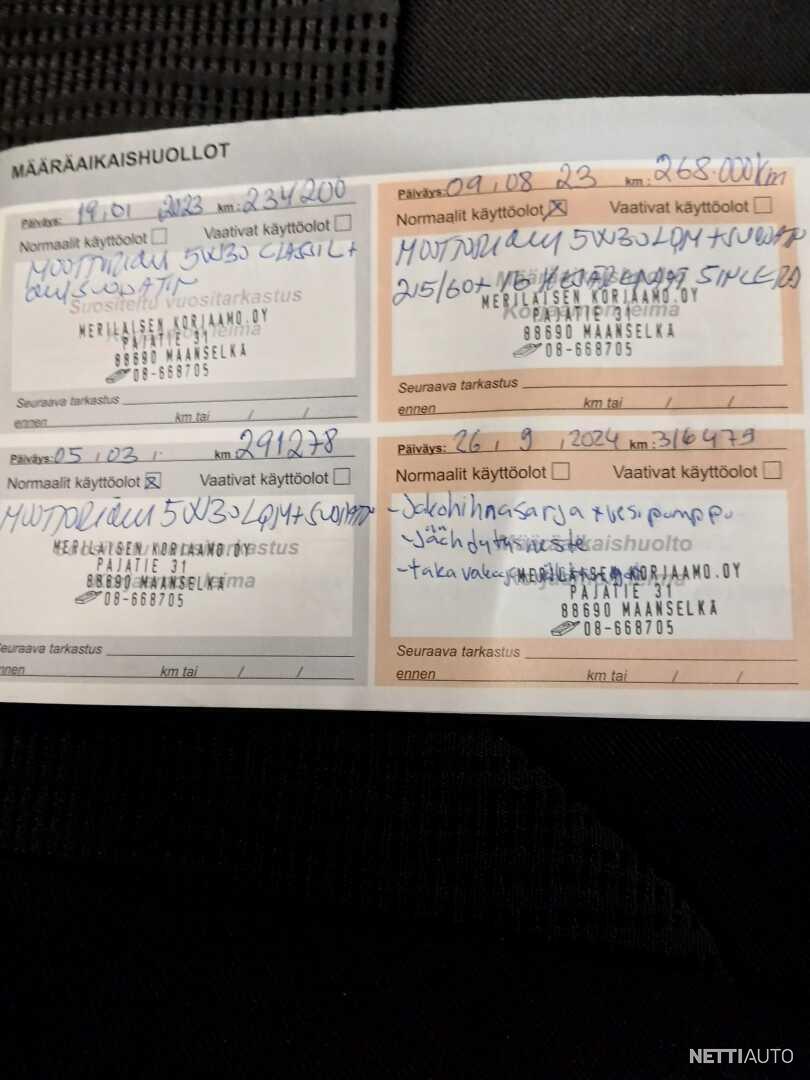 MÄÄRÄAIKAISHUOLLOT
Päiväys: 19.01 2023 km: 234200
Normaalit käyttöolot Vaativat käyttöolot
MOOTTORIÖLJY 5W30 CLASSIC +
ÖLJYSUODATIN
Suositeltu vuositarkastus
MERILAISEN KORJAAMO.OY
PAJATIE 31
88690 MAANSELKA
08-668705
Seuraava tarkastus
ennen km tai / /
Päiväys: 09.08 23 km: 268.000km
Normaalit käyttöolot Vaativat käyttöolot
MOOTTORIÖLJY 5W30 LQM + SUODATIN
215/60 16
MERILAISEN KORJAAMO.OY
PAJATIE 31
88690 MAANSELKA
08-668705
Seuraava tarkastus
ennen km tai / /
Päiväys: 05.03. km 291278
Normaalit käyttöolot Vaativat käyttöolot
MOOTTORIÖLJY 5W30 LQM + SUODATIN
MERILAISEN KORJAAMO.OY
PAJATIE 31
88690 MAANSELKA
08-668705
Seuraava tarkastus
ennen km tai / /
Päiväys: 26.9.2024 km: 316479
Normaalit käyttöolot Vaativat käyttöolot
- Jakohihnasarja + vesipumppu
- Jäähdytysneste
- taka
MERILAISEN KORJAAMO.OY
PAJATIE 31
88690 MAANSELKA
08-668705
Seuraava tarkastus
ennen km tai / /
NETTIAUTO